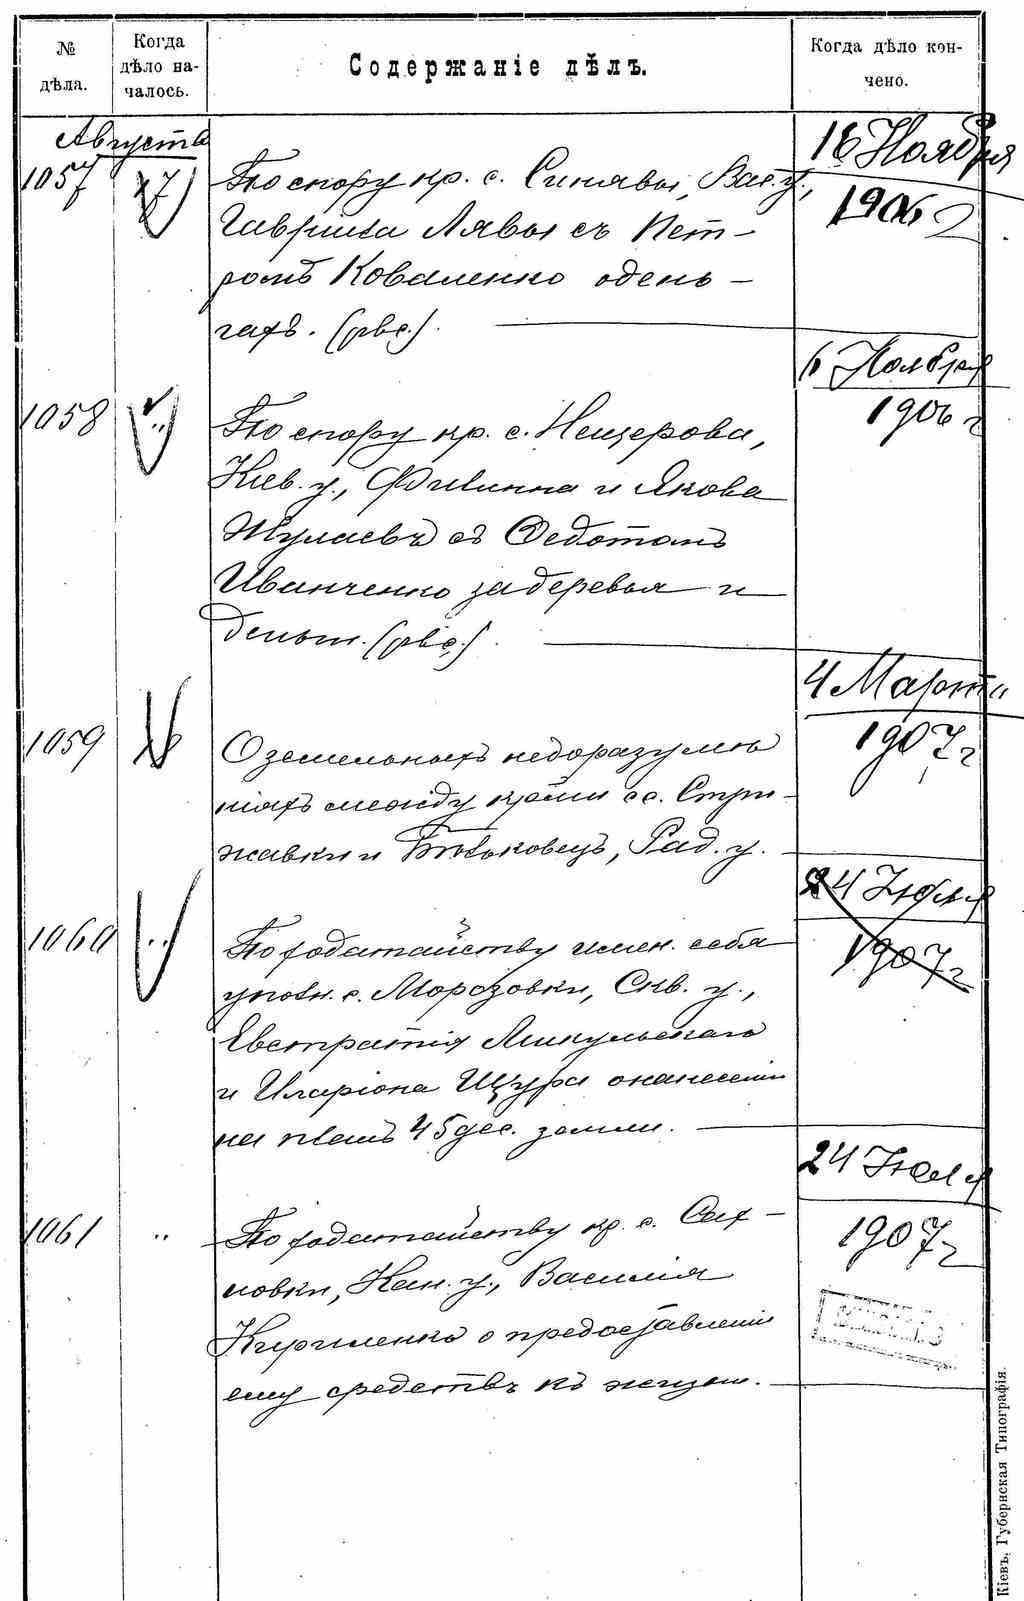 № дѣла.
Когда дѣло началось.
Содержаніе дѣлъ.
Когда дѣло кончено.
Августа
1057
27
По спору кр. с. Синявы, Вас. у.,
Гавриила Лявы съ Пет-
ромъ Коваленко о день-
гахъ. (рвс.).
16 Ноября
1906 г
1058
"
По спору кр. с. Нещерова,
Кіев. у., Филиппа и Якова
Шулаевъ съ Федотомъ
Иванченко за деревья и
деньги. (рвс.).
6 Ноября
1906 г
1059
О земельныхъ недоразумѣ
ніяхъ между кр-ми с.с. Стри-
жавки и, Рад. у.
4 Марта
1907 г
1060
"
По ходатайству имен. себя
уполн. с. Морозовки, Скв. у.,
Евстратія Микульскаго
и Иларіона Щура о нанесеніи
на планъ 45 дес. земли.
24 Іюля
1907 г
1061
"
По ходатайству кр. с. Сах-
новки, Кан. у., Василія
Кириленко о предоставленіи
ему средствъ къ жизни.
24 Іюля
1907 г
Кіевъ, Губернская Типографія.